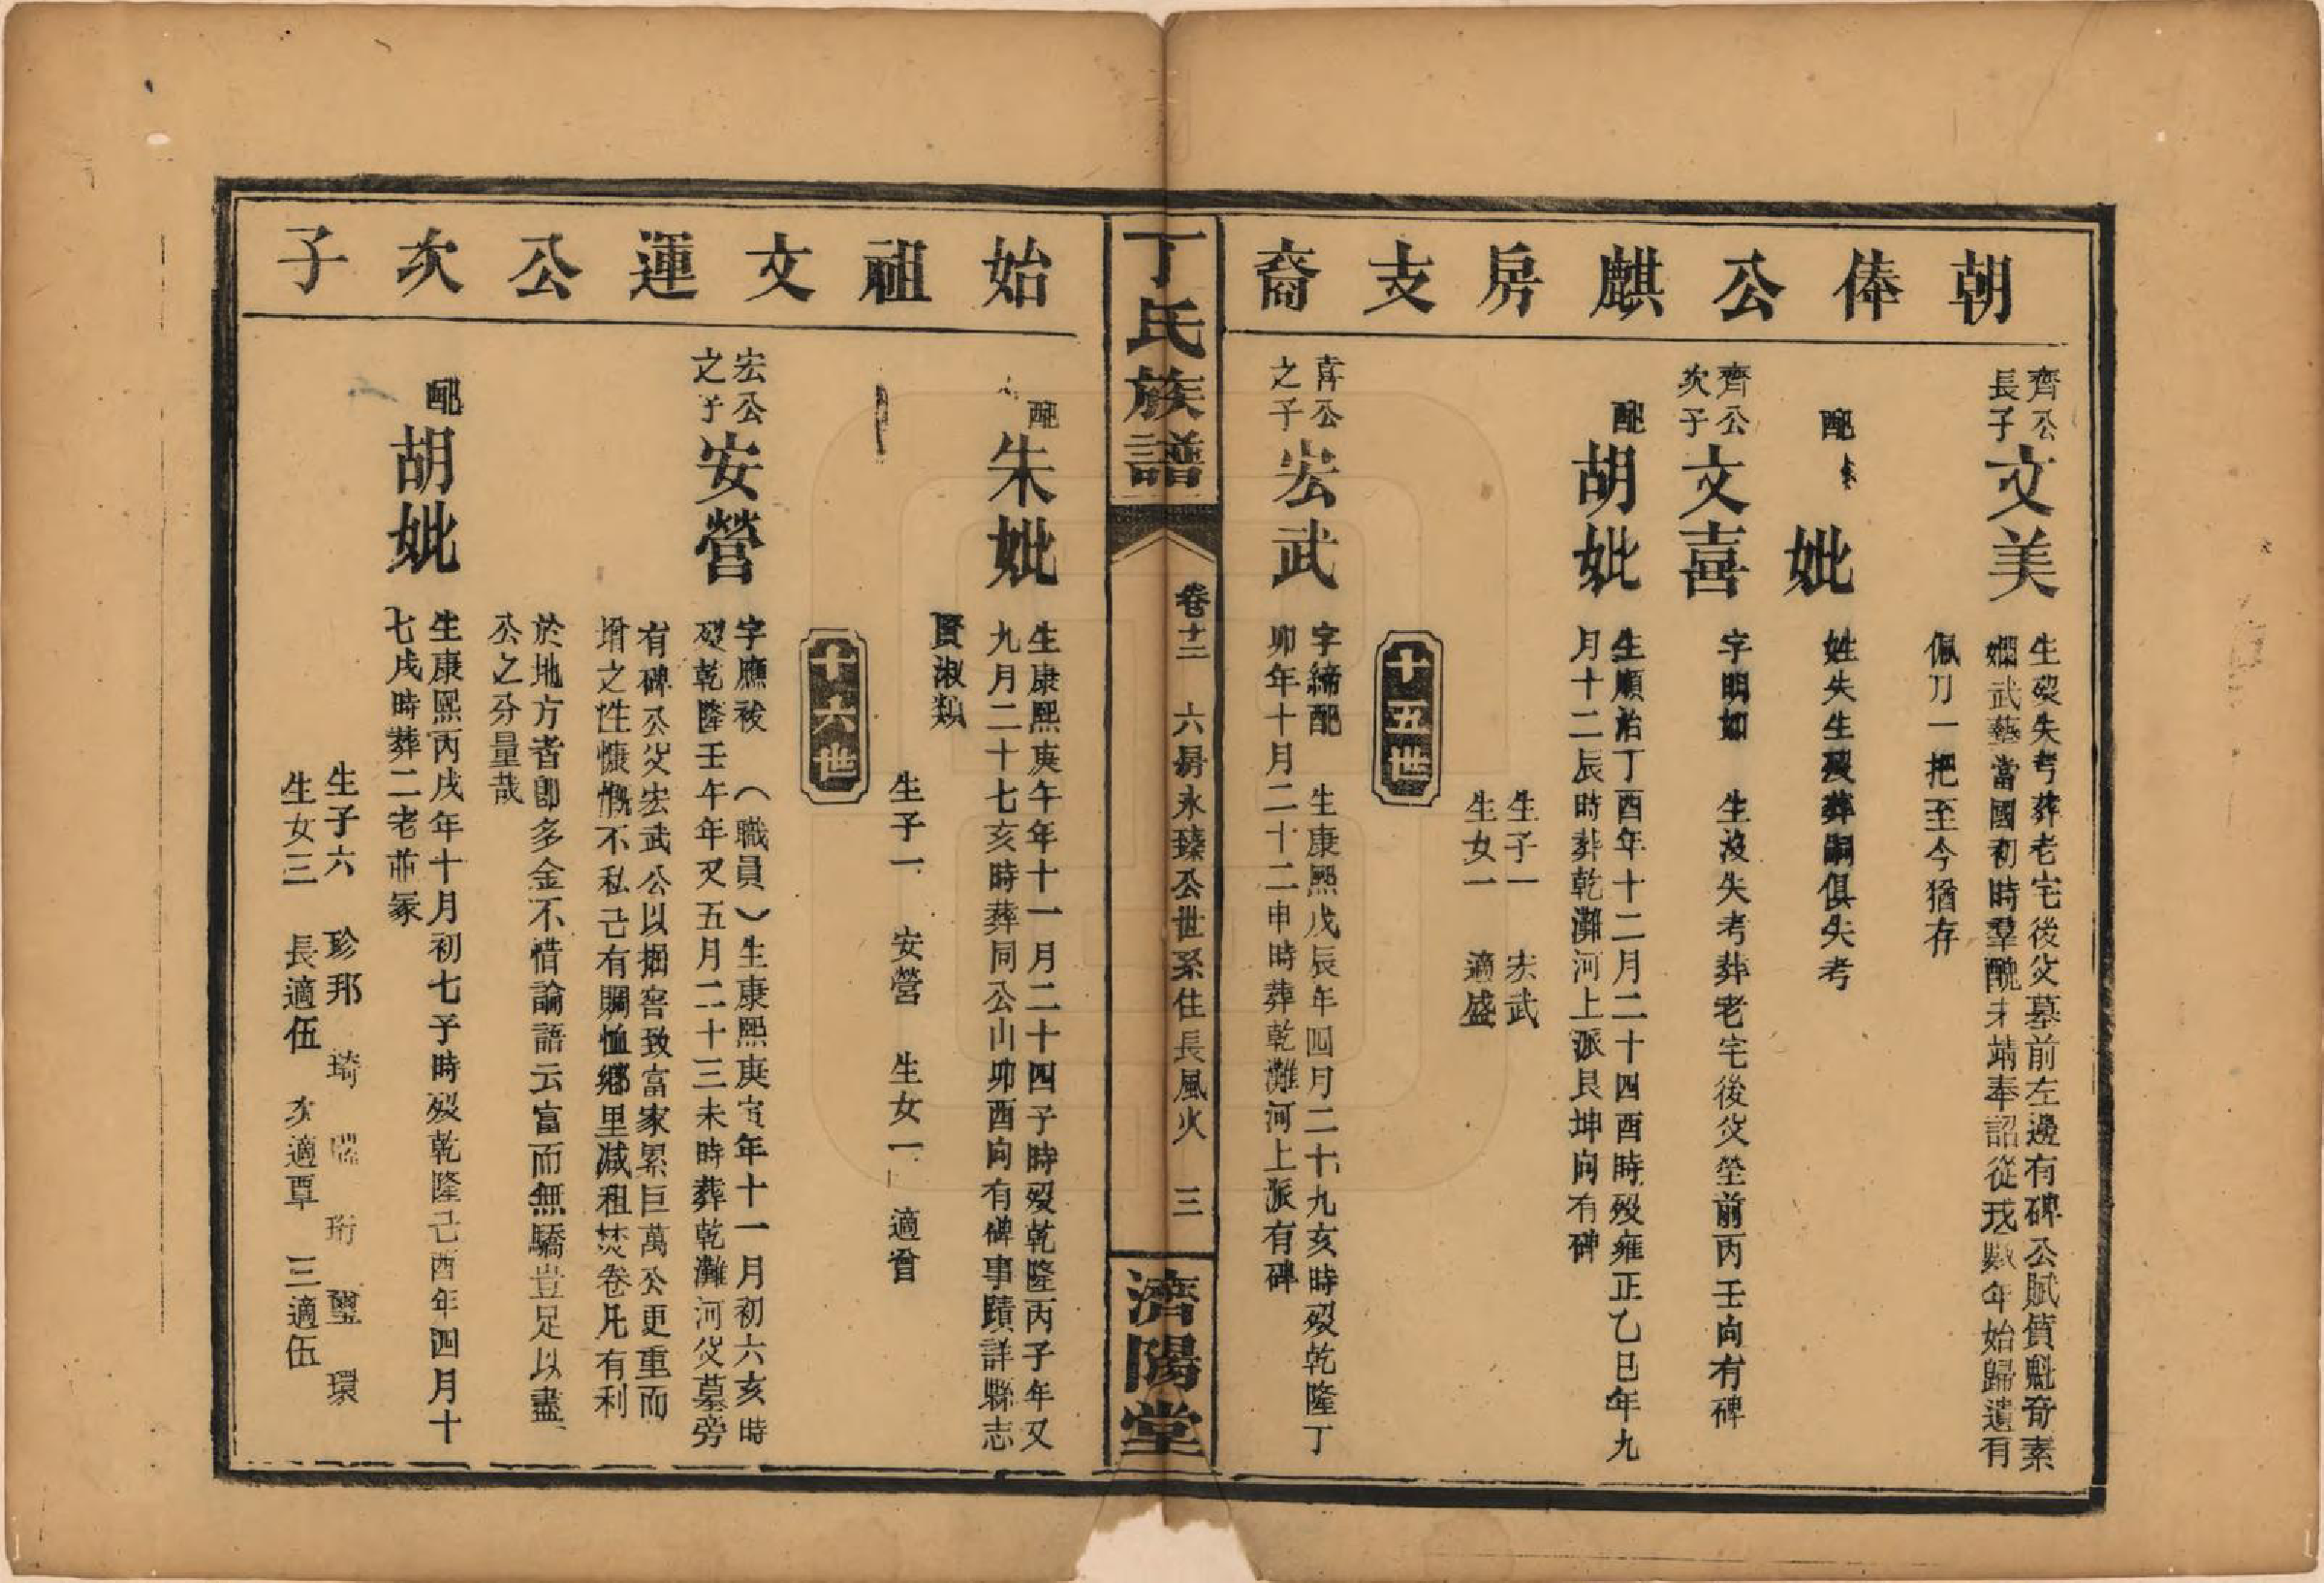 朝俸公麒房支裔
齊公長子
文美
生殁失考葬老宅後父墓前左邊有碑公賦質魁奇素
嫻武藝當國初時羣醜未靖奉詔從戎數年始歸遺有
佩刀一把至今猶存
配
妣
姓失生殁葬嗣俱失考
齊公次子
文喜
字明如　生沒失考葬老宅後父塋前丙壬向有碑
配
胡妣
生順治丁酉年十二月二十四酉時殁雍正乙巳年九
月十二辰時葬乾灘河上派艮坤向有碑
生子一　宏武
生女一　適盛
十五世
喜公之子
宏武
字締配　生康熙戊辰年四月二十九亥時殁乾隆丁
卯年十月二十二申時葬乾灘河上派有碑
丁氏族譜
卷十二　六房永臻公世系住長風火　三
濟陽堂
始祖文運公次子
配
朱妣
生康熙庚午年十一月二十四子時殁乾隆丙子年又
九月二十七亥時葬同公山卯酉向有碑事蹟詳縣志
賢淑類
生子一　安營　生女一　適曾
十六世
宏公之子
安營
字應祓（職員）生康熙庚寅年十一月初六亥時
殁乾隆壬午年又五月二十三未時葬乾灘河父墓旁
有碑公父宏武公以掘窖致富家累巨萬公更重而
增之性慷慨不私己有賙恤鄉里減租焚卷凡有利
於地方者卽多金不惜論語云富而無驕豈足以盡
公之分量哉
配
胡妣
生康熙丙戌年十月初七子時殁乾隆己酉年四月十
七戌時葬二老茔冢
生子六　珍　邦　琦　珩　璽　環
生女三　長適伍　次適覃　三適伍